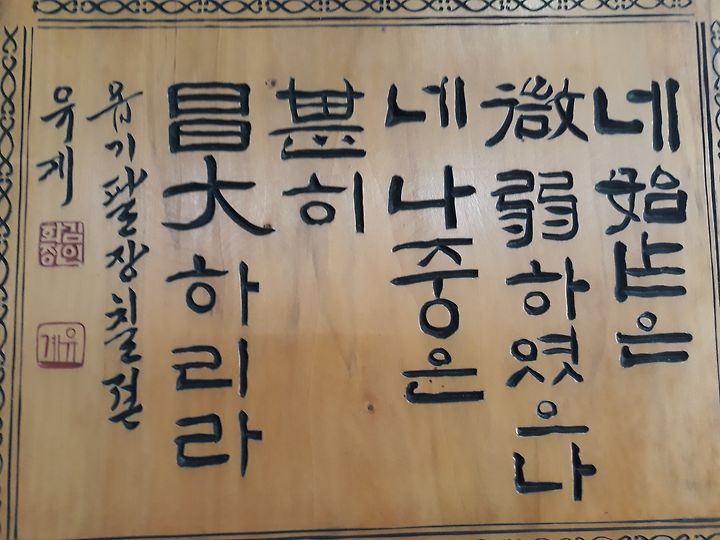 네 始作은
微弱하였으나
네 나중은
甚히
昌大하리라
욥기팔장칠절
유계
유계